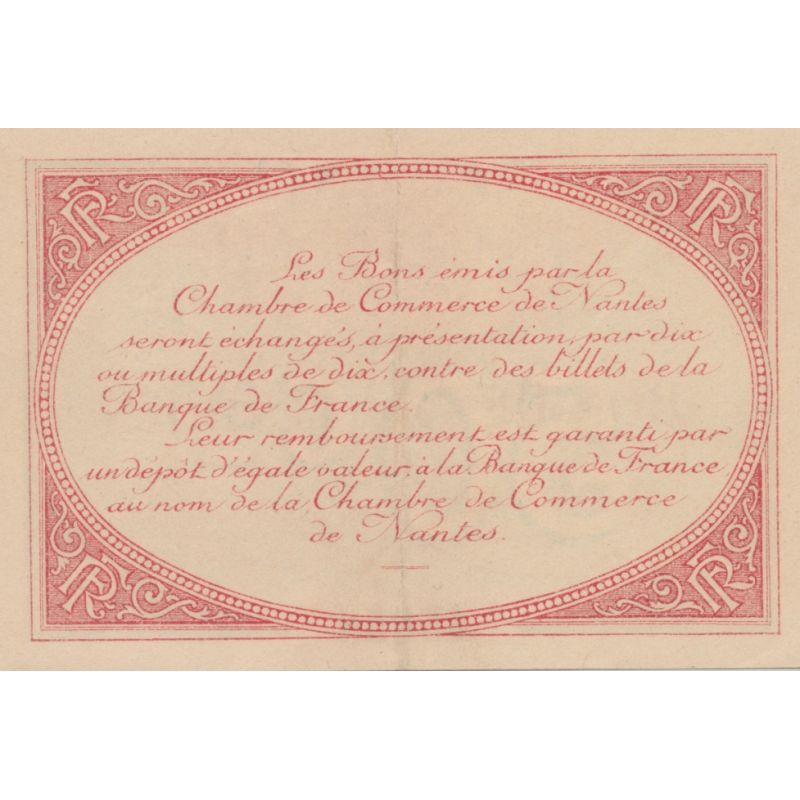 RF RF
Les Bons émis par la
Chambre de Commerce de Nantes
seront échangés, à présentation, par dix
ou multiples de dix, contre des billets de la
Banque de France.
Leur remboursement est garanti par
un dépôt d'égale valeur, à la Banque de France
au nom de la Chambre de Commerce
de Nantes.
RF RF